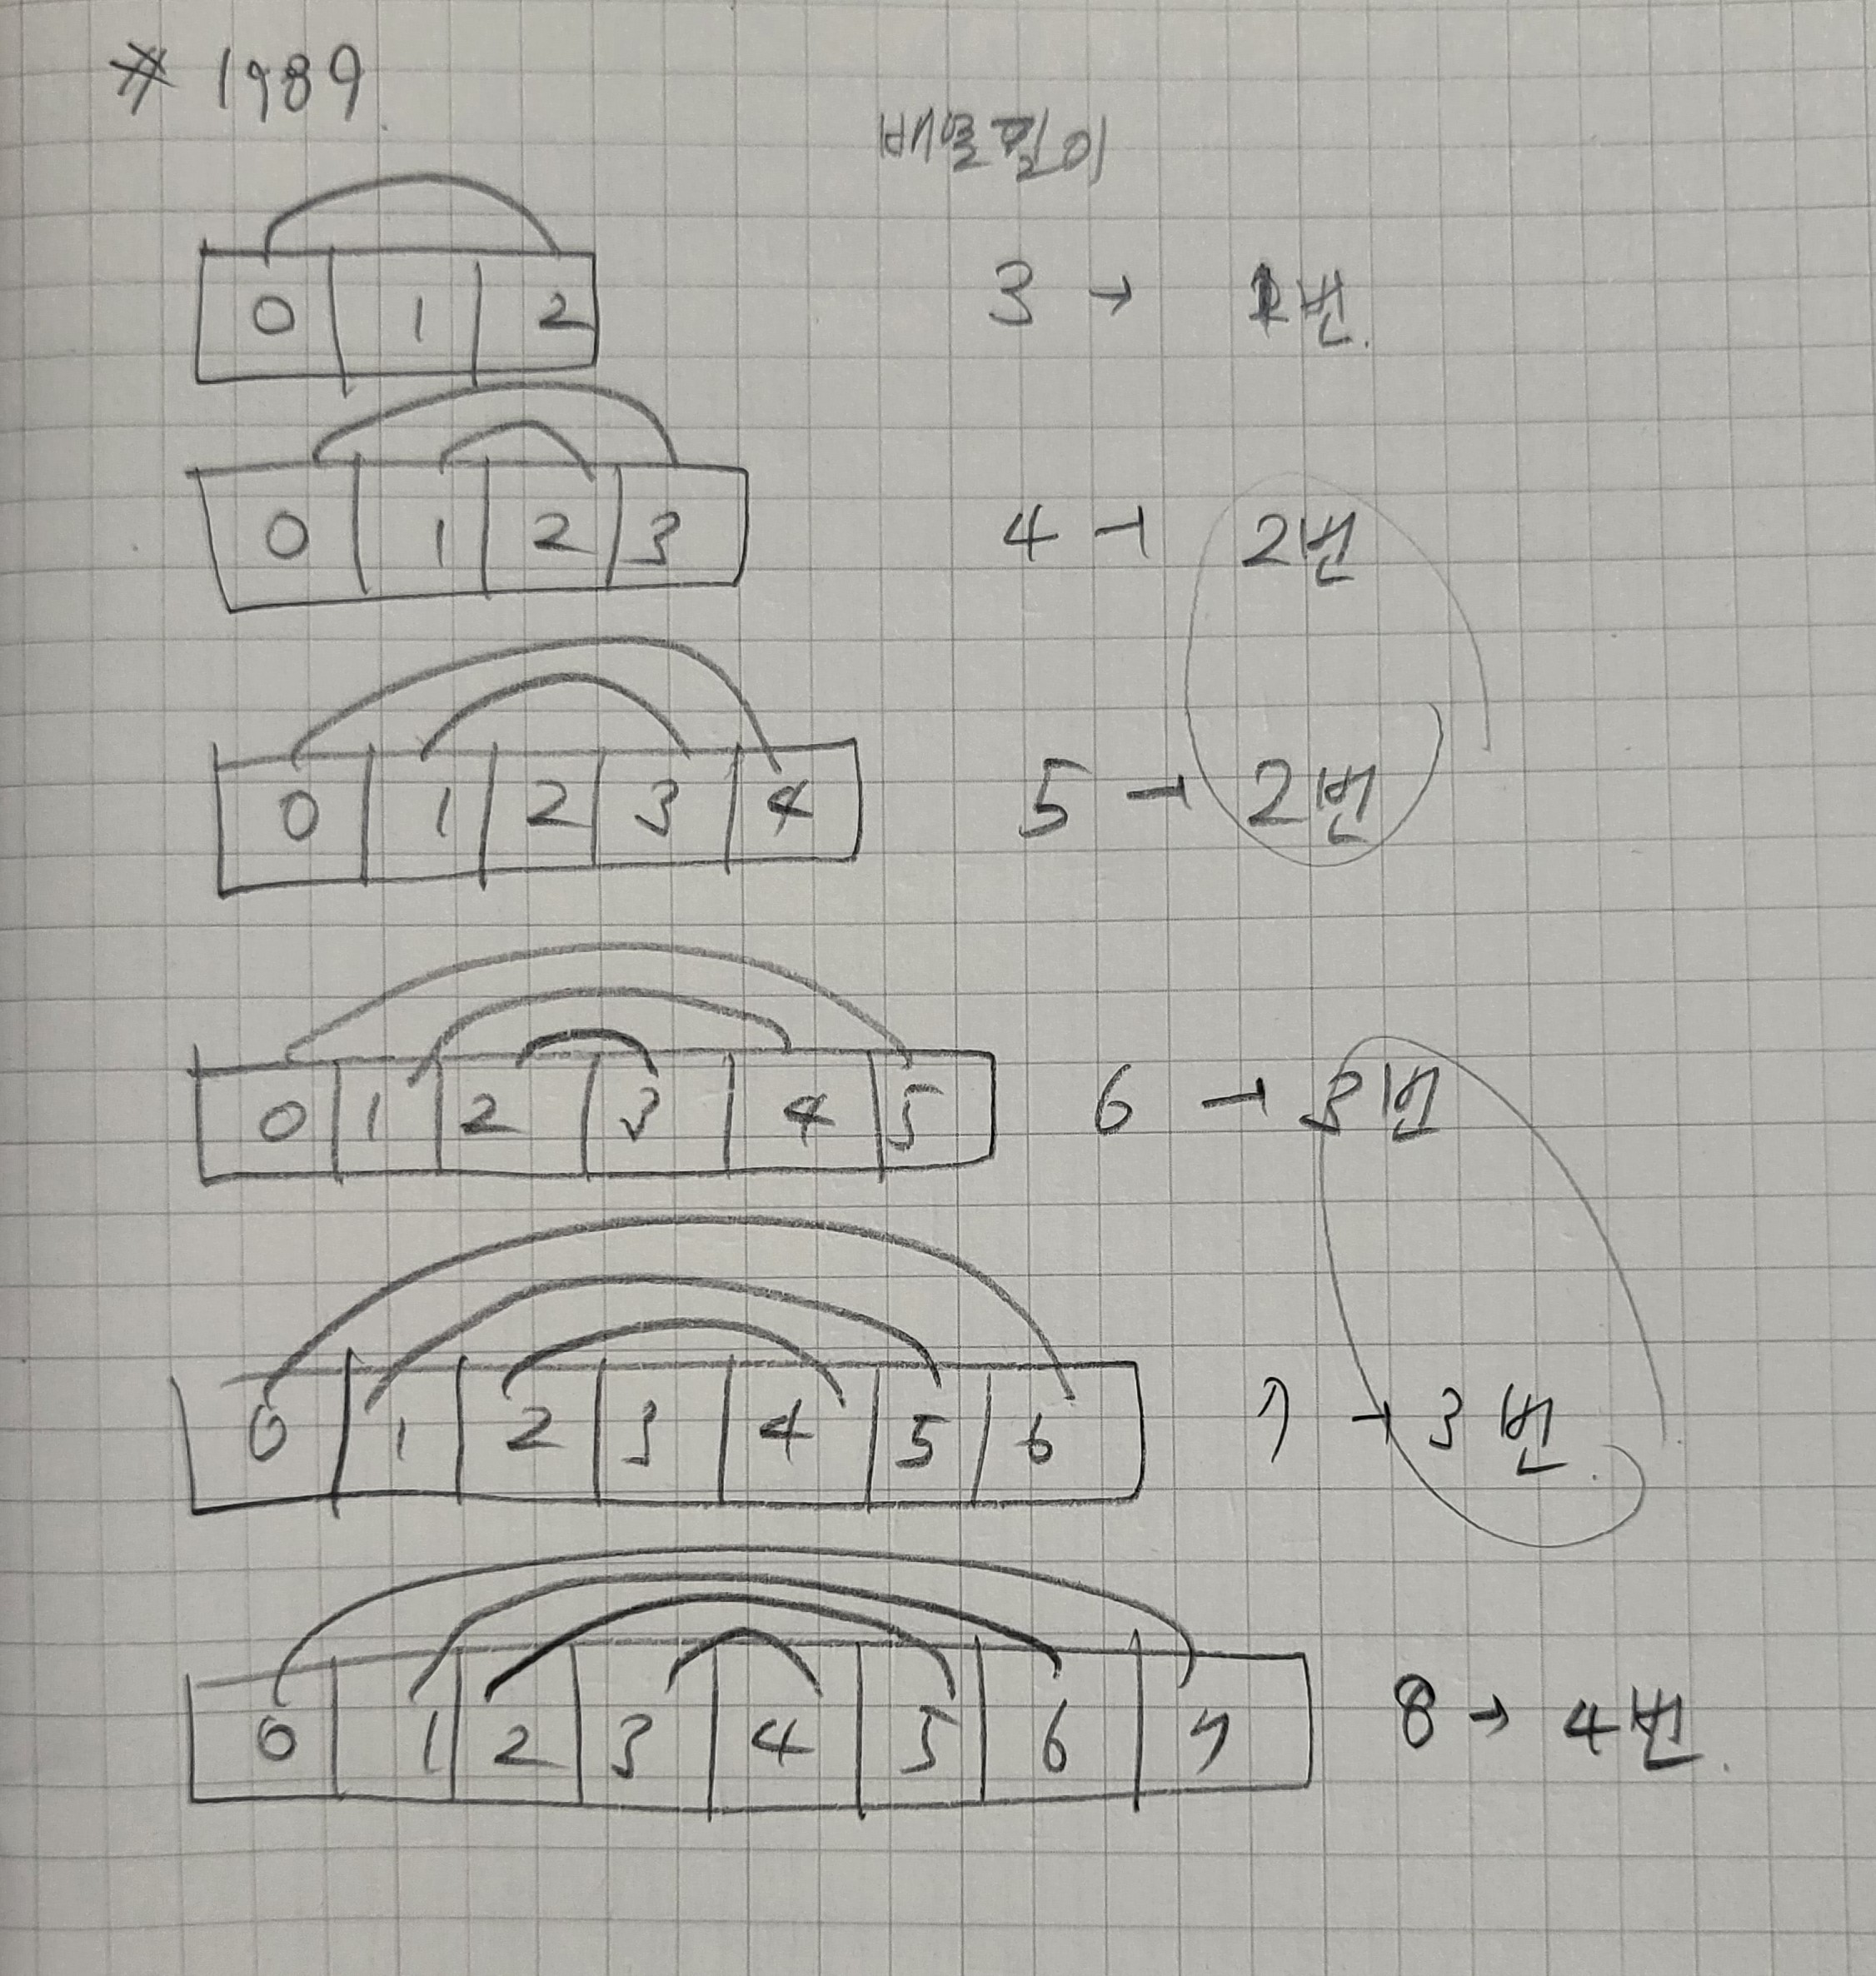 # 1989.
배열길이
0 1 2 3 → 1번.
0 1 2 3 4 → 2번
0 1 2 3 4 5 → 2번
0 1 2 3 4 5 6 → 3번
0 1 2 3 4 5 6 7 → 3번.
0 1 2 3 4 5 6 7 8 → 4번.